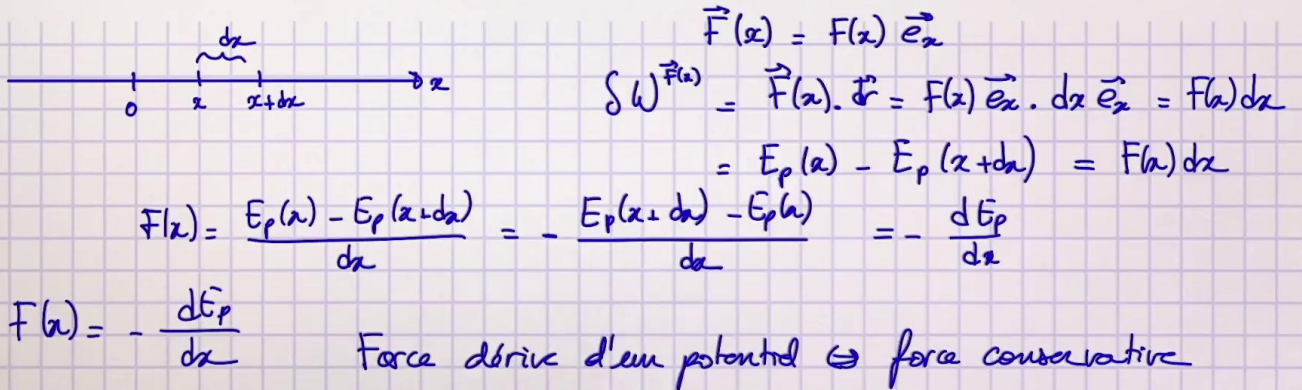 dx
0 x x+dx x
F⃗(x) = F(x) e⃗x
δW^F⃗(x) = F⃗(x) . dr⃗ = F(x) e⃗x . dx e⃗x = F(x) dx
= Ep(x) - Ep(x+dx) = F(x) dx
F(x) = (Ep(x) - Ep(x+dx))/dx = - (Ep(x+dx) - Ep(x))/dx = - dEp/dx
F(x) = - dEp/dx Force dérive d'un potentiel ⇔ force conservative